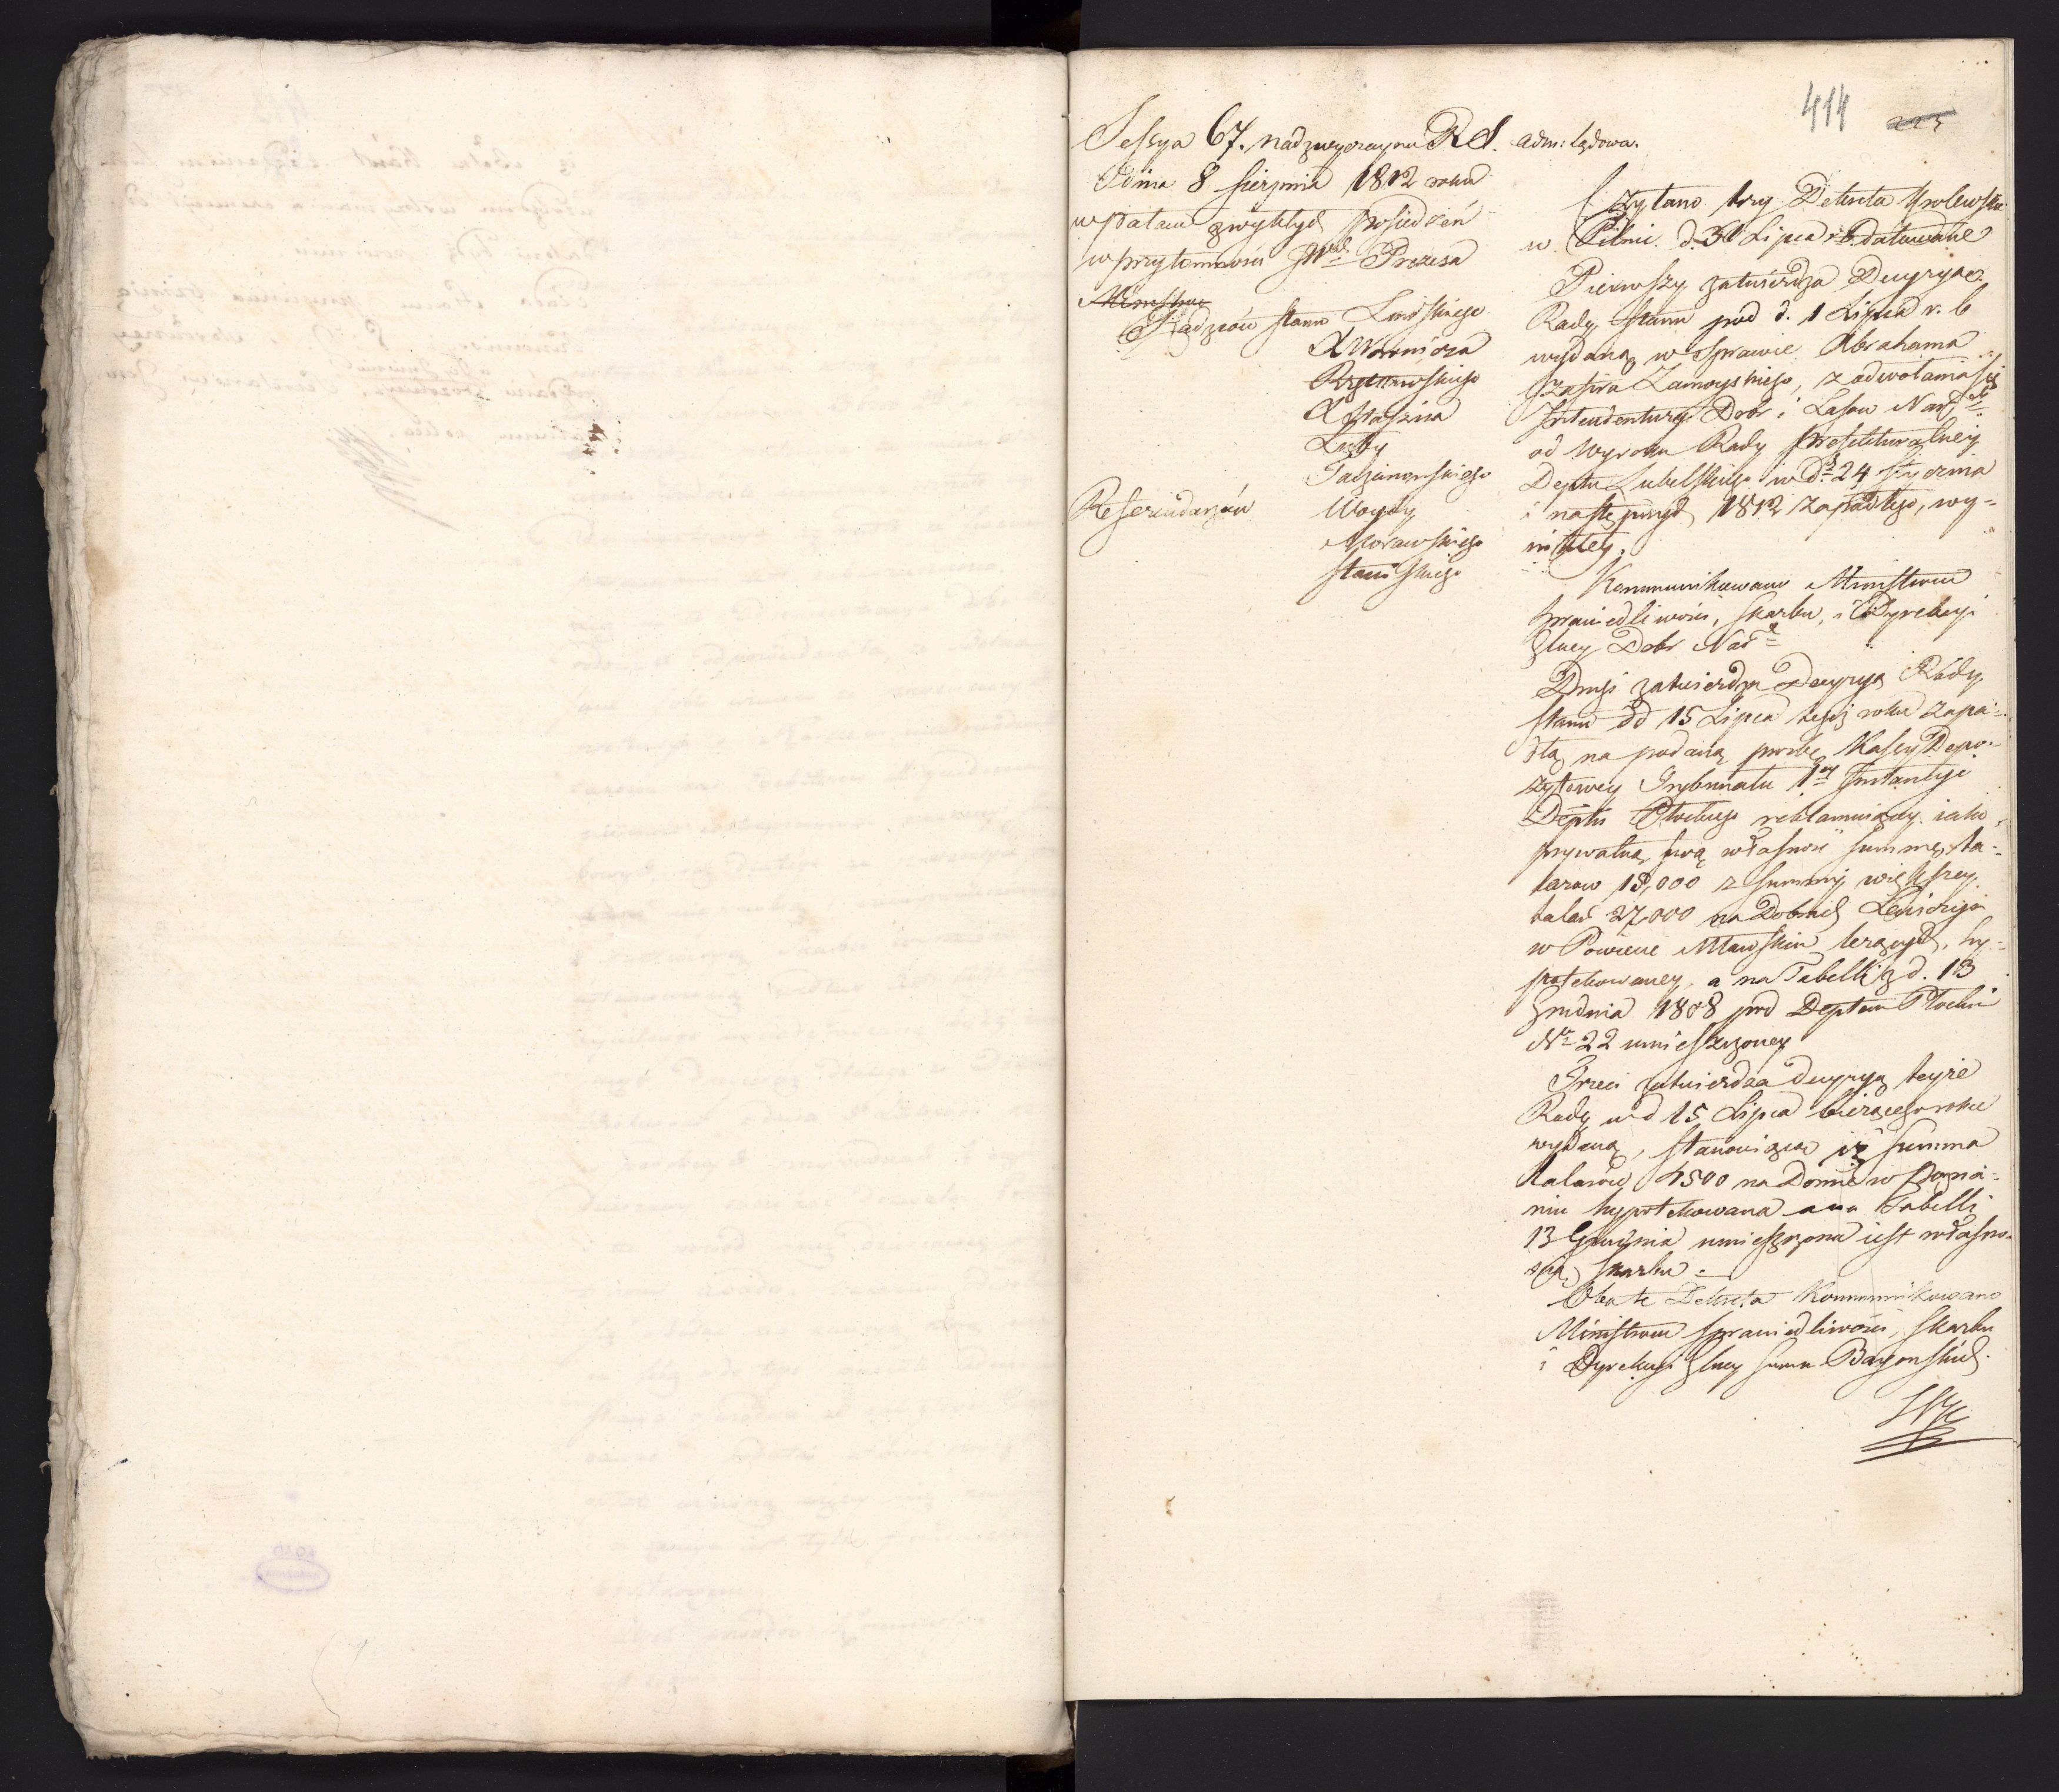 414
Sessya 67. nadzwyczayna R S. adm: sądowa.
Dnia 8 Sierpnia 1812 roku
w pałacu zwykłych posiedzeń
w przytomności JW. Prezesa
Ministrów
Radzców stanu Lińskiego
X Woronicza
X Staszica
Referendarzów Woydy
Morawskiego
Czytano trzy Dekreta Krolewskie
w Pilnic. d. 30 Lipca r. b. datowane
Pierwszy zatwierdza Decyzyą
Rady Stanu pod d. 1 Lipca r. b
wydaną w sprawie Abrahama
Szafira Zamoyskiego, z odwołania się
Intendentury Dobr i Lasow Nar.
od wyroku Rady Prefekturalney
Deptu Lubelskiego w d. 24 Stycznia
i następnych 1812 zapadłego, wy-
nikłey.
Kommunikowano Ministrom
sprawiedliwości, skarbu, i Dyrekcyi
Glney Dobr Nar
Drugi zatwierdza Decyzyą Rady
stanu dd 15 Lipca tegoż roku zapa-
dłą na podaną prośbę Kassy Depo-
zytowey Trybunału 1ey Instancyi
Deptu Płockiego reklamuiącey iako
prywatną swą własność summę ta-
larow 18,000 z summy większey
talar 27,000 na Dobrach
w Powiecie Mławskim leżących, hy-
potekowaney, a na Tabelli z d. 13
Grudnia 1808 pod Deptem Płockim
Nr 22 umieszczoney
Trzeci zatwierdza decyzyą teyże
Rady w d 15 Lipca bieżącego roku
wydaną, stanowiącą iż summa
talarów 4500 na Domie w Pozna-
niu hypotekowana a na Tabelli
13 Grudnia umieszczona iest własno-
ścią skarbu.
Oba te Dekreta Kommunikowano
Ministrom sprawiedliwości, skarbu
i Dyrekcyi Glney summ Bayońskich.